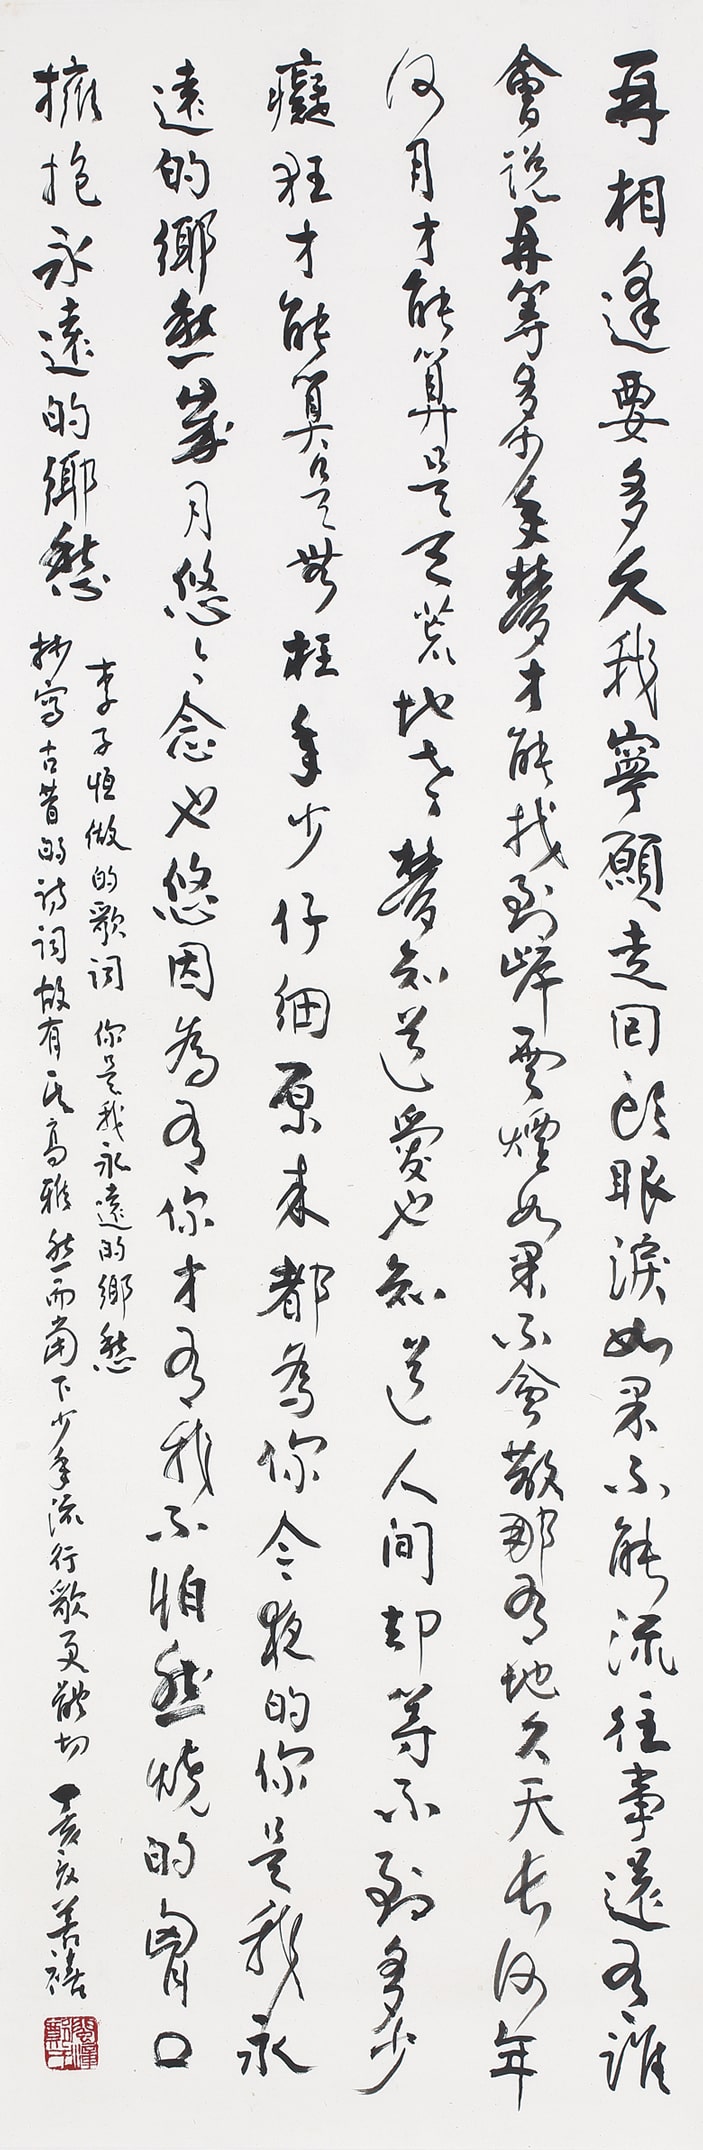 再相逢要多久我寧願走回頭眼淚如果不能流往事還有誰
會說再等多少年夢才能找到岸雲煙如果不會散那有地久天長何年
何月才能算是天荒地老夢知道愛也知道人間却等不到多少
癡狂才能算是無枉年少仔細原來都為你今夜的你是我永
遠的鄉愁歲月悠悠念也悠因為有你才有我不怕燃燒的胸口
擁抱永遠的鄉愁
李子恒做的歌詞 你是我永遠的鄉愁
抄寫古昔的詩詞故有其高雅然而當下少年流行歌更能切
丁亥夏善禧